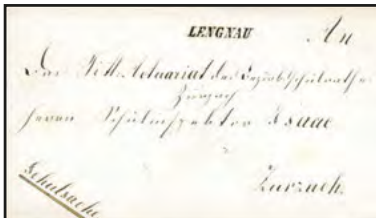 LENGNAU An
Das Titl. Actuariat des Bezirksschulrathes
Zurzach
Herrn Schulinspektor Isaac
Zurzach
Schulsache